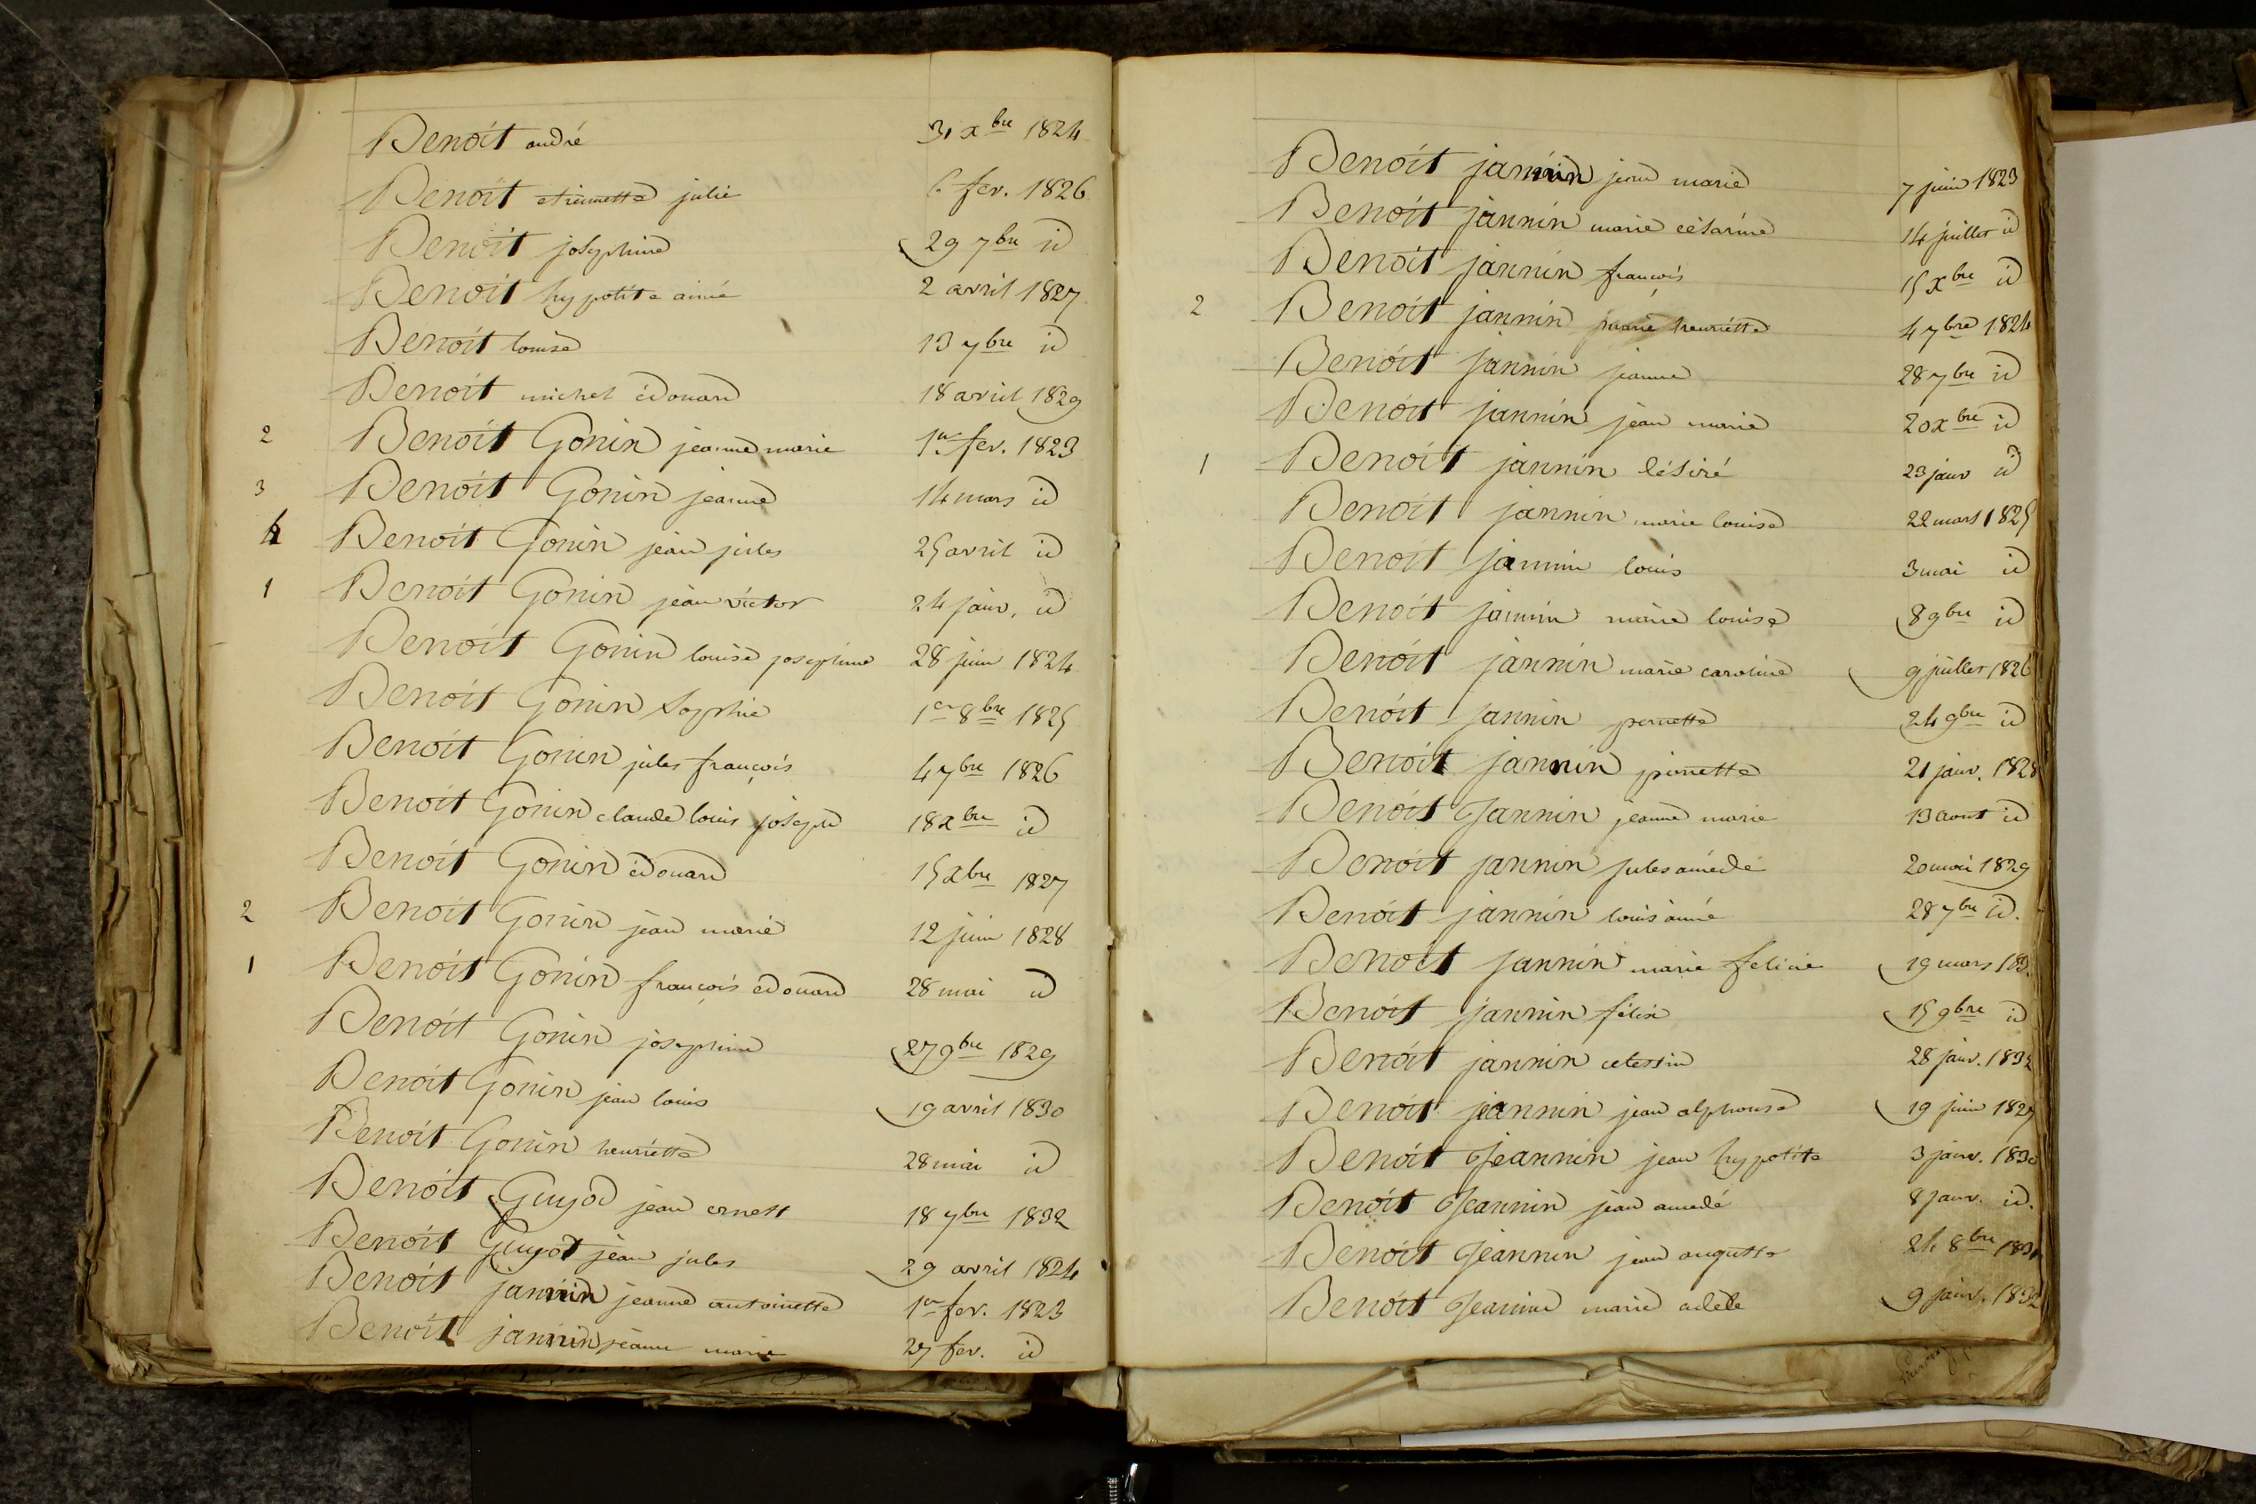 Benoit andré 31 xbre 1824
Benoit etiennette julie 6 fev. 1826
Benoit josephine 29 7bre id
Benoit hypolite aimé 2 avril 1827
Benoit louise 13 7bre id
Benoit michel édouard 18 avril 1829
2 Benoit Gonin jeanne marie 1er fev. 1823
3 Benoit Gonin jeanne 14 mars id
4 Benoit Gonin jean jules 25 avril id
1 Benoit Gonin jean victor 24 janv. id
Benoit Gonin louise josephine 28 juin 1824
Benoit Gonin Sophie 1er 8bre 1825
Benoit Gonin jules françois 4 7bre 1826
Benoit Gonin claude louis joseph 18 xbre id
Benoit Gonin édouard 15 xbre 1827
2 Benoit Gonin jean marie 12 juin 1828
1 Benoit Gonin françois edouard 28 mai id
Benoit Gonin josephine 27 9bre 1829
Benoit Gonin jean louis 19 avril 1830
Benoit Gonin henriette 28 mai id
Benoit Guyod jean ernest 18 7bre 1832
Benoit Guyot jean jules 29 avril 1824
Benoit jannin jeanne antoinette 1er fev. 1823
Benoit jannin jeanne marie 27 fev. id
Benoit jannin jean marie 7 juin 1823
Benoit jannin marie césarine 14 juillet id
Benoit jannin françois 15 xbre id
2 Benoit jannin marie henriette 4 7bre 1824
Benoit jannin jeanne 28 7bre id
Benoit jannin jean marie 20 xbre id
1 Benoit jannin désiré 23 janv id
Benoit jannin marie louise 22 mars 1825
Benoit jannin louis 3 mai id
Benoit jannin marie louise 8 9bre id
Benoit jannin marie caroline 9 juillet 1826
Benoit jannin pernette 24 9bre id
Benoit jannin pierrette 21 janv. 1828
Benoit Jannin jeanne marie 13 aout id
Benoit jannin jules amédé 20 mai 1829
Benoit jannin louis aimé 28 7bre id.
Benoit jannin marie felicie 19 mars
Benoit jannin félix 15 9bre id
Benoit jannin celestin 28 janv. 1832
Benoit jeannin jean alphonse 19 juin 1827
Benoit Jeannin jean hypolite 3 janv. 1830
Benoit Jeannin jean amedé 8 janv. id.
Benoit Jeannin jean auguste 24 8bre
Benoit Jeannin marie adèle 9 janv. 1832